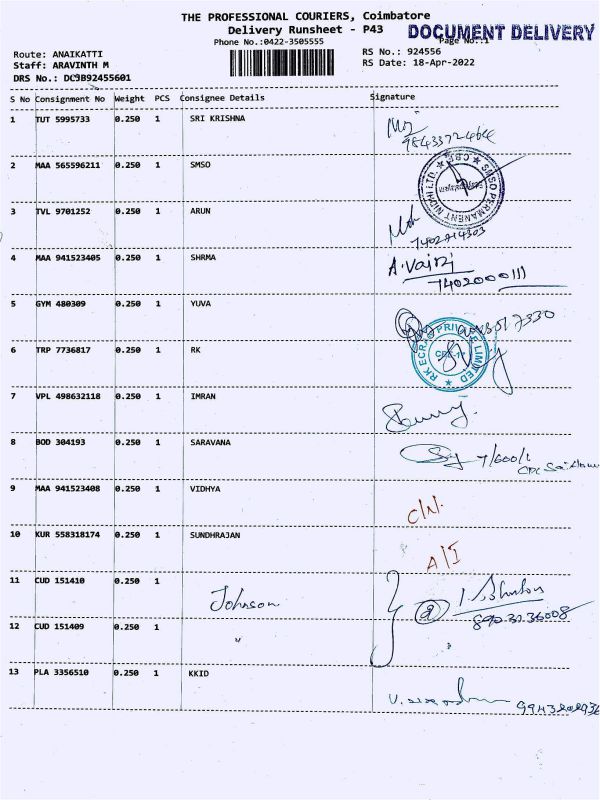 THE PROFESSIONAL COURIERS, Coimbatore
Delivery Runsheet - P43
DOCUMENT DELIVERY
Phone No.:0422-3505555
Page No.:1
Route: ANAIKATTI
RS No.: 924556
Staff: ARAVINTH M
RS Date: 18-Apr-2022
DRS No.: DC9B92455601
S No Consignment No Weight PCS Consignee Details Signature
1 TUT 5995733 0.250 1 SRI KRISHNA
2 MAA 565596211 0.250 1 SMSO
SMSO PERMANENT NIDHI LTD. ★ CBE ★
3 TVL 9701252 0.250 1 ARUN
4 MAA 941523405 0.250 1 SHRMA A.Vaisi
7402000111
5 GYM 480309 0.250 1 YUVA
6 TRP 7736817 0.250 1 RK
RK ECRAO PRIVATE LIMITED ★
7 VPL 498632118 0.250 1 IMRAN
8 BOD 304193 0.250 1 SARAVANA
9 MAA 941523408 0.250 1 VIDHYA C/N.
10 KUR 558318174 0.250 1 SUNDHRAJAN A/I
11 CUD 151410 0.250 1
Johnson
12 CUD 151409 0.250 1
"
13 PLA 3356510 0.250 1 KKID